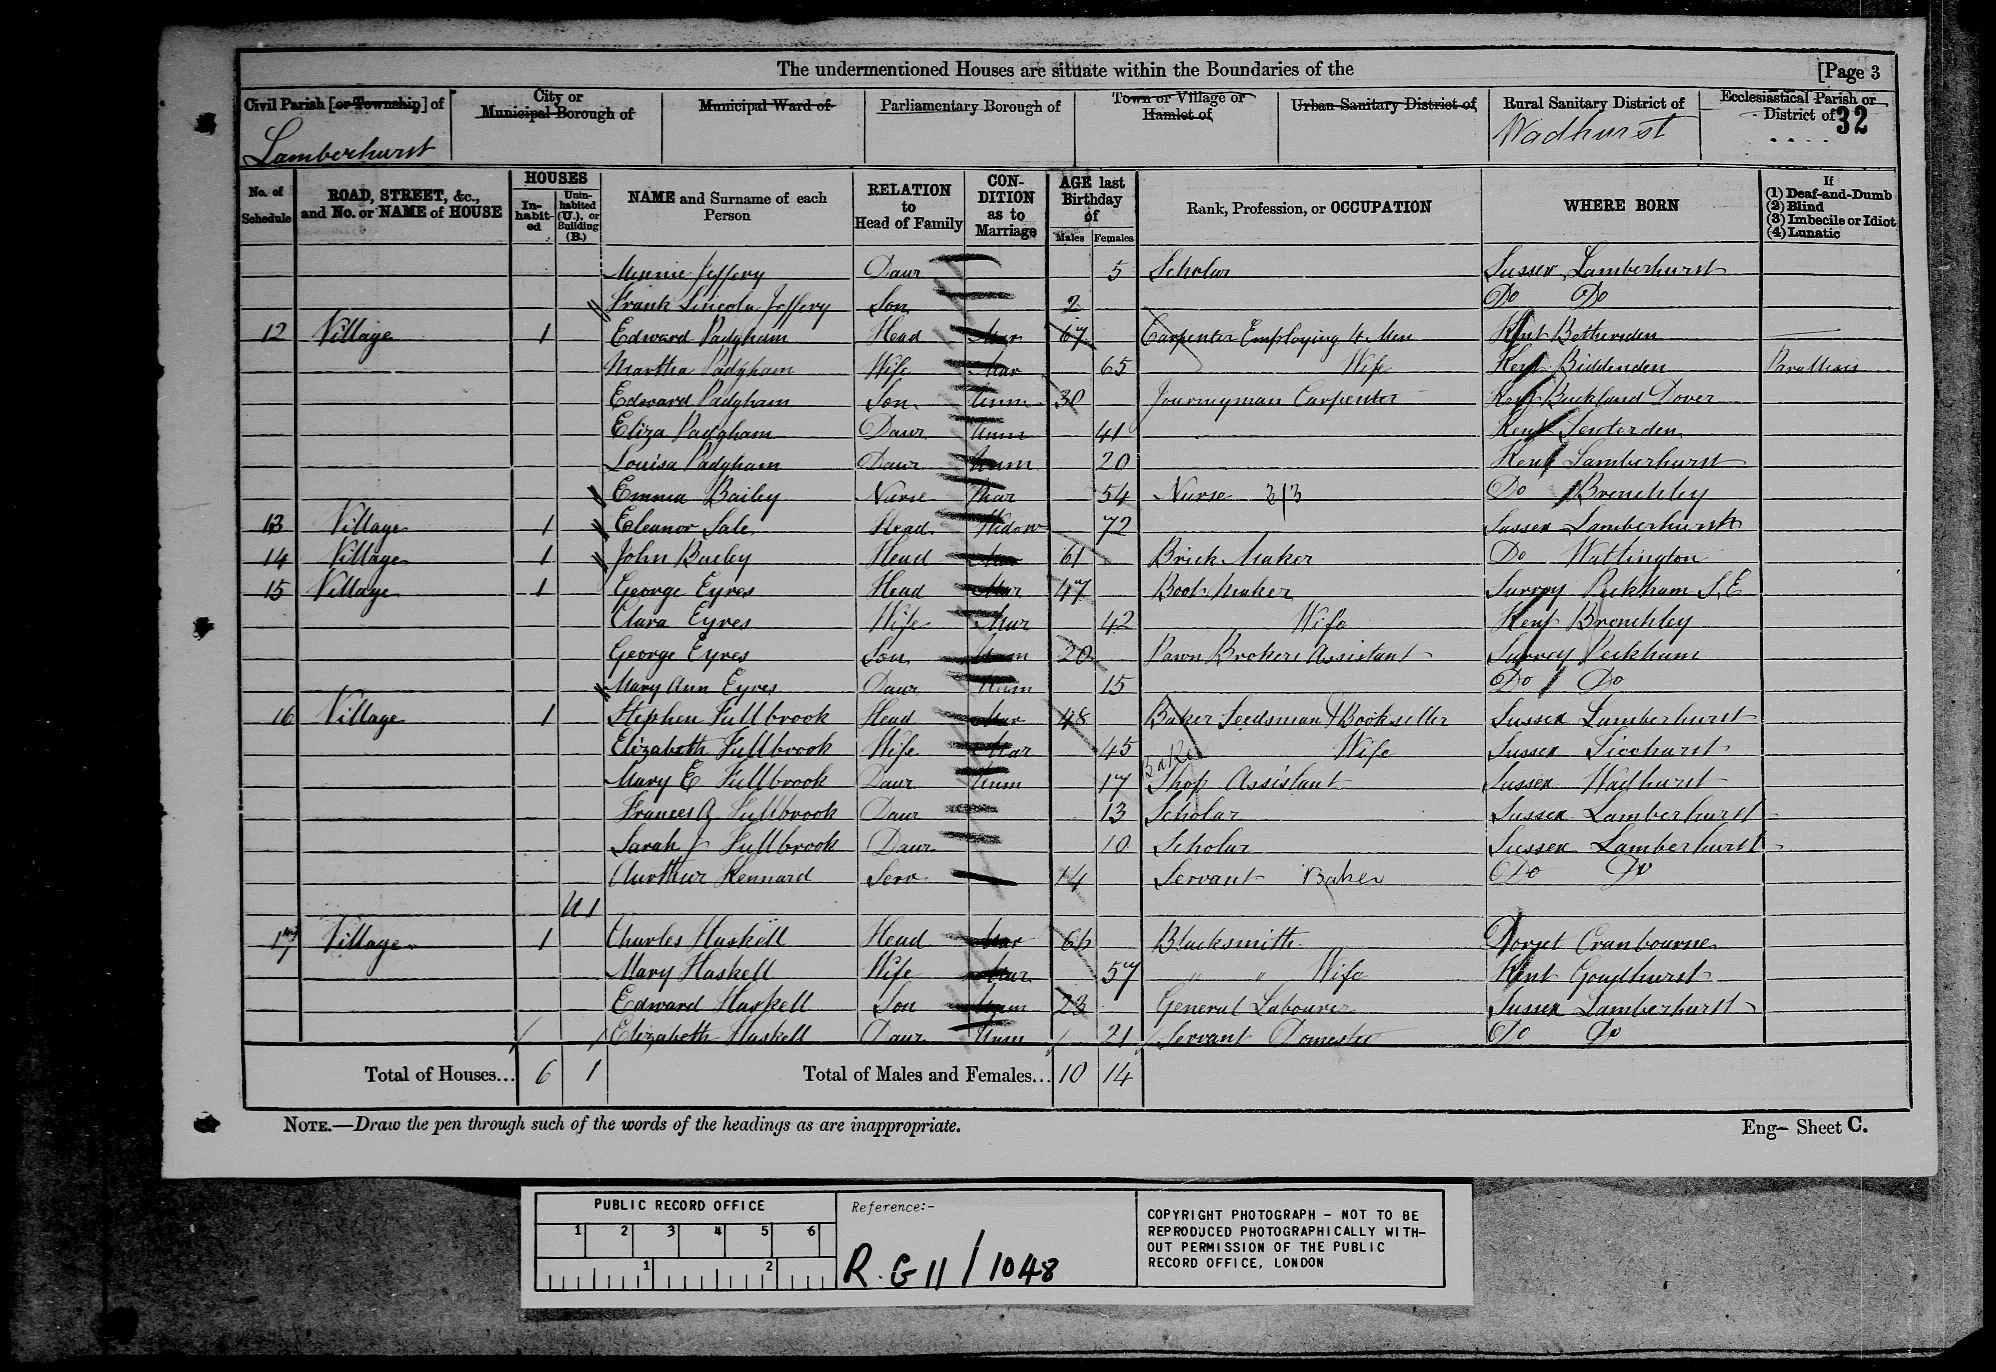 The undermentioned Houses are situate within the Boundaries of the [Page 3
Civil Parish [or Township] of Lamberhurst
City or Municipal Borough of
Municipal Ward of
Parliamentary Borough of
Town or Village or Hamlet of
Urban Sanitary District of
Rural Sanitary District of Wadhurst
Ecclesiastical Parish or District of
32
No. of Schedule
ROAD, STREET, &c., and No. or NAME of HOUSE
HOUSES
In-habit-ed
Unin-habited (U.), or Building (B.)
NAME and Surname of each Person
RELATION to Head of Family
CON-DITION as to Marriage
AGE last Birthday of
Males Females
Rank, Profession, or OCCUPATION
WHERE BORN
If (1) Deaf-and-Dumb (2) Blind (3) Imbecile or Idiot (4) Lunatic
Minnie Jeffery Daur 5 Scholar Sussex Lamberhurst
Frank Lincoln Jeffery Son 2 Do Do
12 Village 1 Edward Padgham Head Mar 67 Carpenter Employing 4 Men Kent Bethersden
Martha Padgham Wife Mar 65 Wife Kent Biddenden Parallisis
Edward Padgham Son Unm 30 Journeyman Carpenter Kent Buckland Dover
Eliza Padgham Daur Unm 41 Kent Tenterden
Louisa Padgham Daur Unm 20 Kent Lamberhurst
Emma Bailey Nurse Mar 54 Nurse Do Brenchley
13 Village 1 Eleanor Sale Head Widow 72 Sussex Lamberhurst
14 Village 1 John Busley Head Mar 61 Brick Maker Do Watlington
15 Village 1 George Eyres Head Mar 47 Boot Maker Surrey Peckham S.E
Clara Eyres Wife Mar 42 Wife Kent Brenchley
George Eyres Son Unm 20 Pawn Brokers Assistant Surrey Peckham
Mary Ann Eyres Daur Unm 15 Do Do
16 Village 1 Stephen Fullbrook Head Mar 48 Baker Seedsman & Bookseller Sussex Lamberhurst
Elizabeth Fullbrook Wife Mar 45 Wife Sussex Ticehurst
Mary E Fullbrook Daur Unm 17 Baker Shop Assistant Sussex Wadhurst
Frances A Fullbrook Daur 13 Scholar Sussex Lamberhurst
Sarah J Fullbrook Daur 10 Scholar Sussex Lamberhurst
Aurthur Kennard Serv 14 Servant Baker Do Do
U 1
17 Village 1 Charles Haskell Head Mar 66 Blacksmith Dorset Cranbourne
Mary Haskell Wife Mar 57 " " Wife Kent Goudhurst
Edward Haskell Son Unm 23 General Labourer Sussex Lamberhurst
Elizabeth Haskell Daur Unm 21 Servant Domestic Do Do
Total of Houses... 6 1 Total of Males and Females... 10 14
NOTE.—Draw the pen through such of the words of the headings as are inappropriate.
Eng— Sheet C.
PUBLIC RECORD OFFICE
1 2 3 4 5 6
1 2
Reference:-
R.G 11/1048
COPYRIGHT PHOTOGRAPH - NOT TO BE
REPRODUCED PHOTOGRAPHICALLY WITH-
OUT PERMISSION OF THE PUBLIC
RECORD OFFICE, LONDON